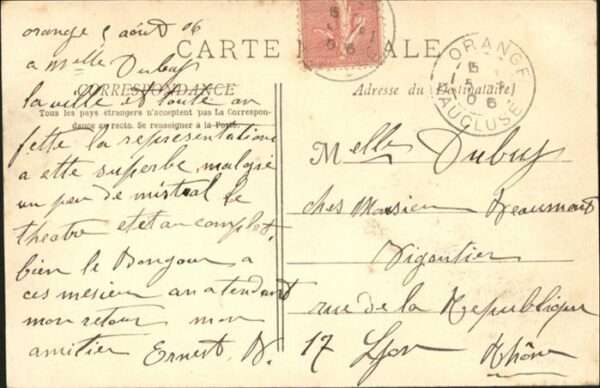 orange 5 août 06
a Melle Dubuy
CARTE POSTALE
CORRESPONDANCE
Tous les pays étrangers n'acceptent pas La Correspon-
dance au recto. Se renseigner à la Poste.
la ville est toute an
fette la representations
a ette superbe, malgré
un peu de mistral le
theatre etet au complet,
bien le Bonjour a
ces mesieu an atendant
mon retour mon
amitier Ernest, D.
ORANGE
VAUCLUSE
Adresse du Destinataire
Melle Dubuy
ches Monsieur Beaumont
rue de la Republique
17 Lyon
Rhône